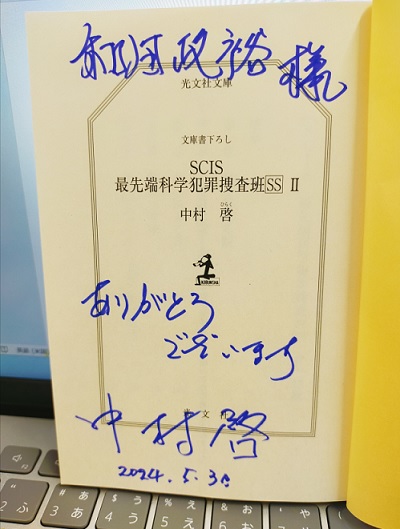 様
光文社文庫
文庫書下ろし
SCIS
最先端科学犯罪捜査班SS II
中村 啓
ひらく
KOBUNSHA
ありがとう
ございます
中村啓
2024.5.30